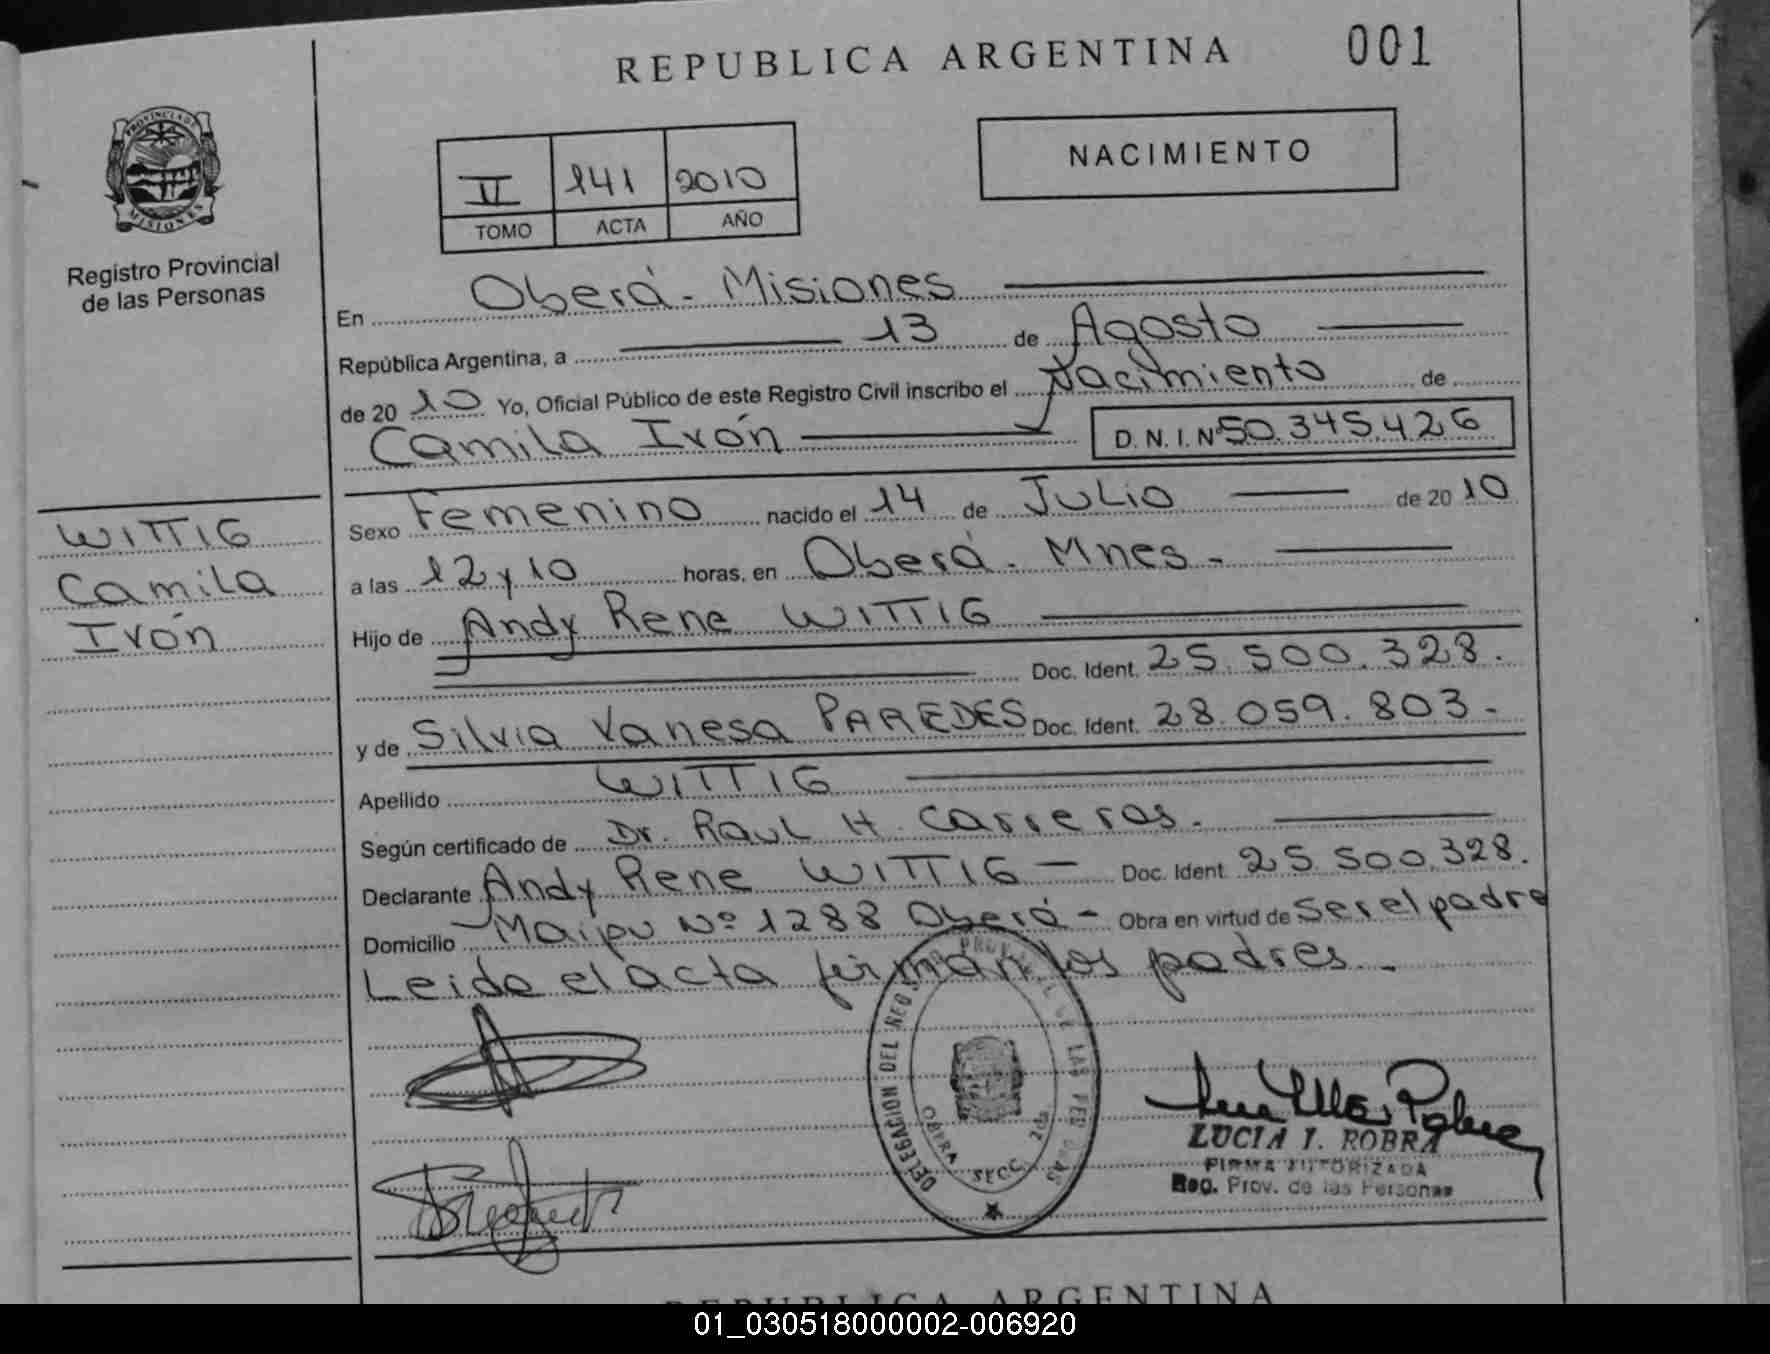 REPUBLICA ARGENTINA
001
PROVINCIA DE
MISIONES
Registro Provincial
de las Personas
II 141 2010
TOMO ACTA AÑO
NACIMIENTO
En Oberá - Misiones
República Argentina, a 13 de Agosto
de 2010 Yo, Oficial Público de este Registro Civil inscribo el Nacimiento de
Camila Ivón D.N.I.Nº 50.345.426
WITTIG
Camila
Ivón
Sexo Femenino nacido el 14 de JULIO de 2010
a las 12 y 10 horas, en Oberá. Mnes -
Hijo de Andy Rene WITTIG
Doc. Ident. 25.500.328.
y de Silvia Vanesa PAREDES Doc. Ident. 28.059.803.-
Apellido WITTIG
Según certificado de Dr. RAUL H. Carreras.
Declarante Andy Rene WITTIG - Doc. Ident. 25.500.328.
Domicilio Maipu Nº 1288 Oberá - Obra en virtud de ser el padre
Leida el acta firman los padres.-
DELEGACION DEL REG PROV DE LAS PERSONAS
OBERA SECC.
LUCIA I. ROBRA
FIRMA AUTORIZADA
Reg. Prov. de las Personas
REPUBLICA ARGENTINA
01_030518000002-006920